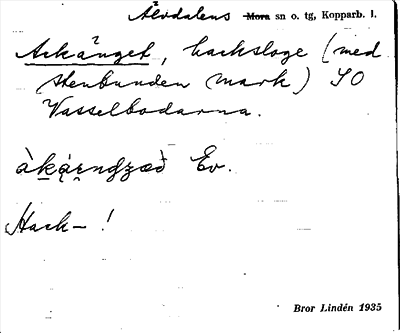 Älvdalens Mora sn o. tg, Kopparb. l.
Ackänget, backsloge (med
stenbunden mark) SO
Vasselbodarna.
Ev.
Hack- !
Bror Lindén 1935